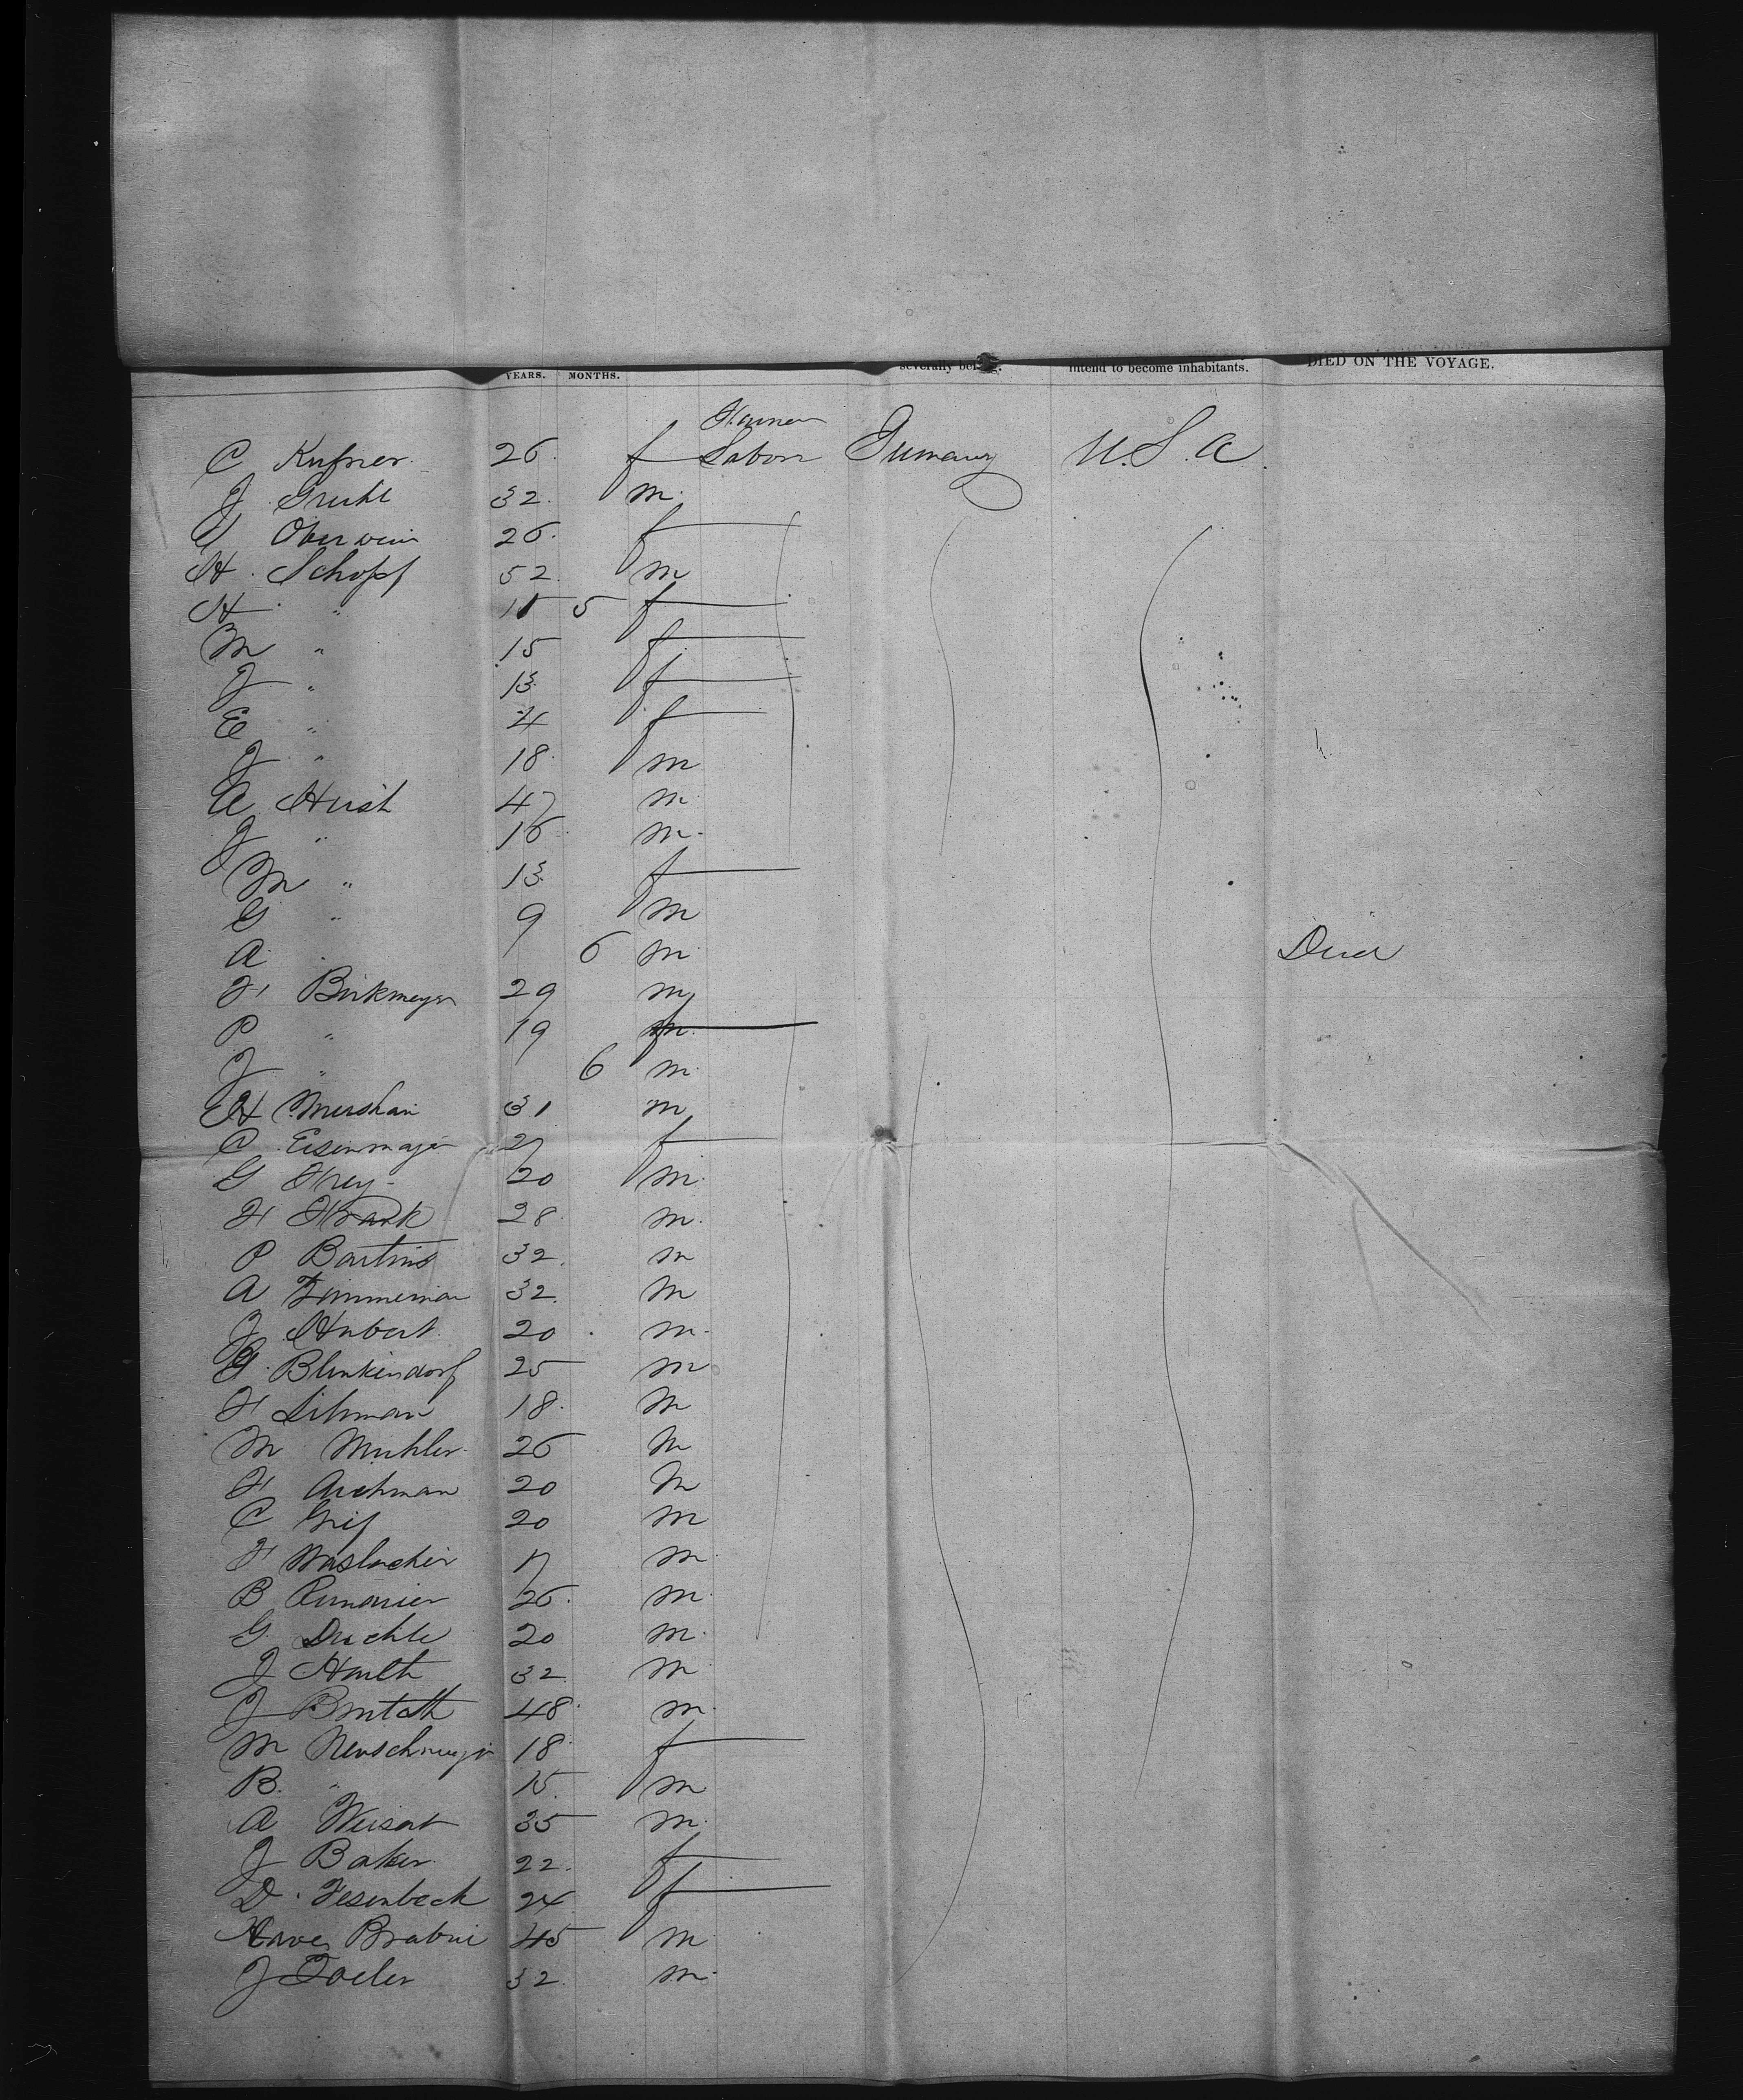 YEARS. MONTHS. severally belong. intend to become inhabitants. DIED ON THE VOYAGE.
C Kufner 26 f Labor Germany U.S.A.
J Gruhl 32 m
26 f
H. Schopf 52 m
H " 11 5 f
M " 15 f
J " 13 f
E " 4 f
J " 18 m
A Hirsh 47 m
J " 16 m
M " 13 f
G " 9 m
A " 6 m Died
F Birkmeyer 29 m
P " 19 f
J " 6 m
H Mershan 31 m
C Eisenmajer 27 f
G Frey 20 m
F Frank 28 m
P Bartins 32 m
A Zimmerman 32 m
J Hubert 20 m
Blinkendorf 25 m
F Lihman 18 m
M Muhler 26 m
F Aichman 20 m
C Greif 20 m
F 17 m
B 26 m
G Duchle 20 m
J Hauth 32 m
J 48 m
M 18 f
B. " 15 m
A Weisert 35 m
J Baker 22 f
D. Fesenbeck 24 f
45 m
J 32 m